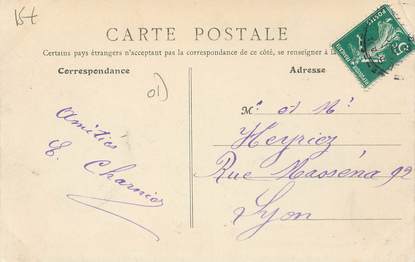 15t
CARTE POSTALE
Certains pays étrangers n'acceptant pas la correspondance de ce côté, se renseigner à la
Correspondance
Adresse
01)
Amitiés
E. Charnioz
M. et M.
Heyrioz
Rue Masséna 92
Lyon
POSTES